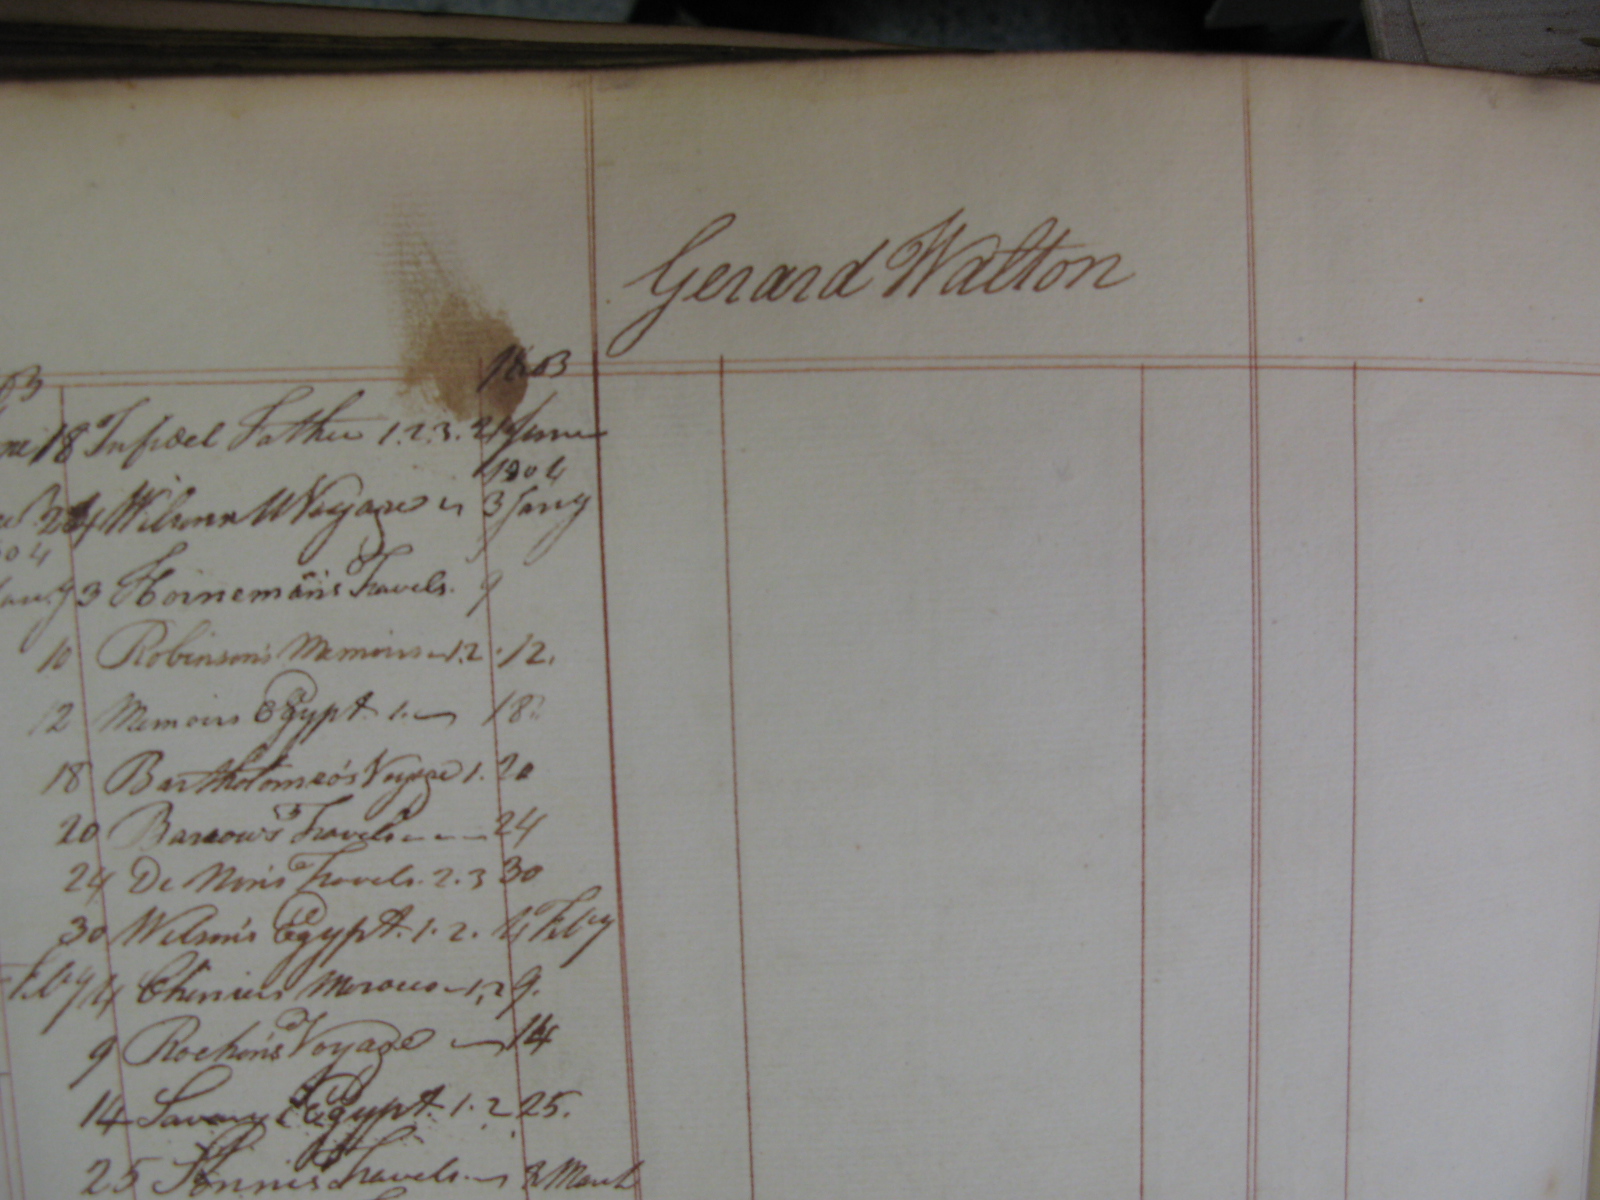 Gerard Walton
03 1803
18 Infidel Father 1.2.3. 21 June
1804
24 Voyage 3 Jany
04
3 Hornemans Travels. 9
10 Robinson's Memoirs 1.2 12.
12 Memoirs Egypt 1. 18
18 Bartholomeo's Voyage 1. 20
20 Barrow's Travels 24
24 De Non's Travels. 2.3 30
30 Wilson's Egypt. 1.2. 4 Feby
Feby 4 Morocco 1.2 9.
9 Rochon's Voyage 14
14 Savary Egypt 1.2 25.
25 Travels 3 March